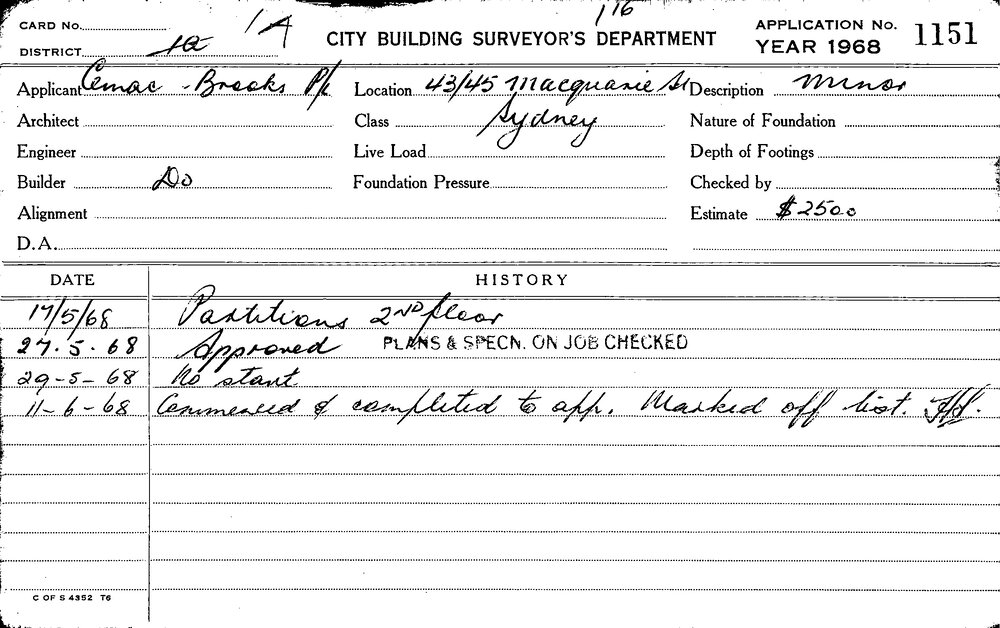 CARD No. 1A 116
DISTRICT 1a CITY BUILDING SURVEYOR'S DEPARTMENT APPLICATION No. 1151
YEAR 1968
Applicant Cemac - Brooks P/L Location 43/45 Macquarie St Description Minor
Architect Class Sydney Nature of Foundation
Engineer Live Load Depth of Footings
Builder Do Foundation Pressure Checked by
Alignment Estimate $2500
D.A.
DATE HISTORY
17/5/68 Partitions 2ND floor
27.5.68 Approved PLANS & SPECN. ON JOB CHECKED
29-5-68 No start
11-6-68 Commenced & completed to app. Marked off list.
C OF S 4352 T6